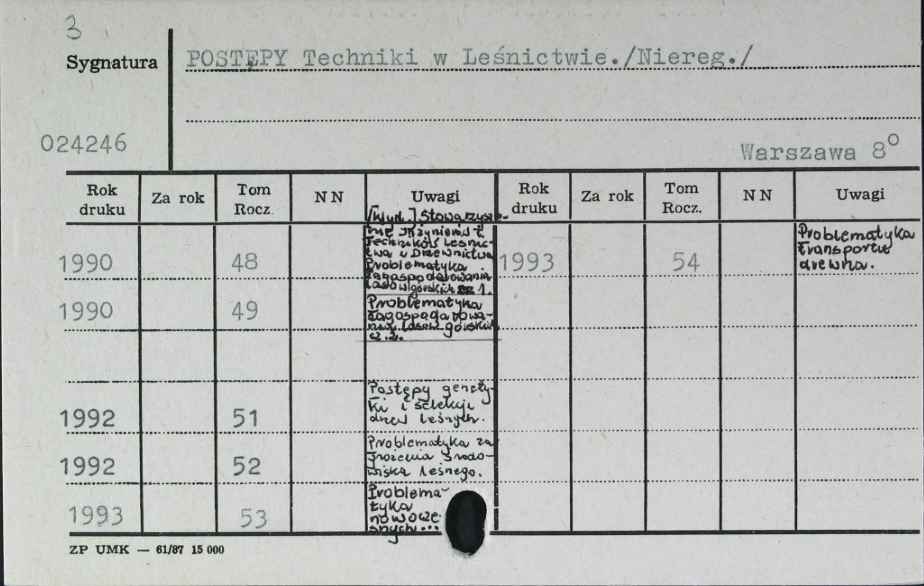 3
Sygnatura
POSTĘPY Techniki w Leśnictwie./Niereg./
024246
Warszawa 8°
Rok druku Za rok Tom Rocz. NN Uwagi Rok druku Za rok Tom Rocz. NN Uwagi
[Wyd.] Stowarzysze-
nie Inżynierów i
Techników Leśnic-
twa i Drzewnictwa
Problematyka
zagospodarowania
lasów górskich cz 1.
1990 48
1990 49
Problematyka
zagospodarowa-
nia lasów górskich
cz. 2.
1992 51
Postępy genety-
ki i selekcji
drzew leśnych.
1992 52
Problematyka za
grożenia środo-
wiska leśnego.
1993 53
Problema-
tyka
nowocze
snych...
1993 54
Problematyka
transportu
drewna.
ZP UMK — 61/87 15 000